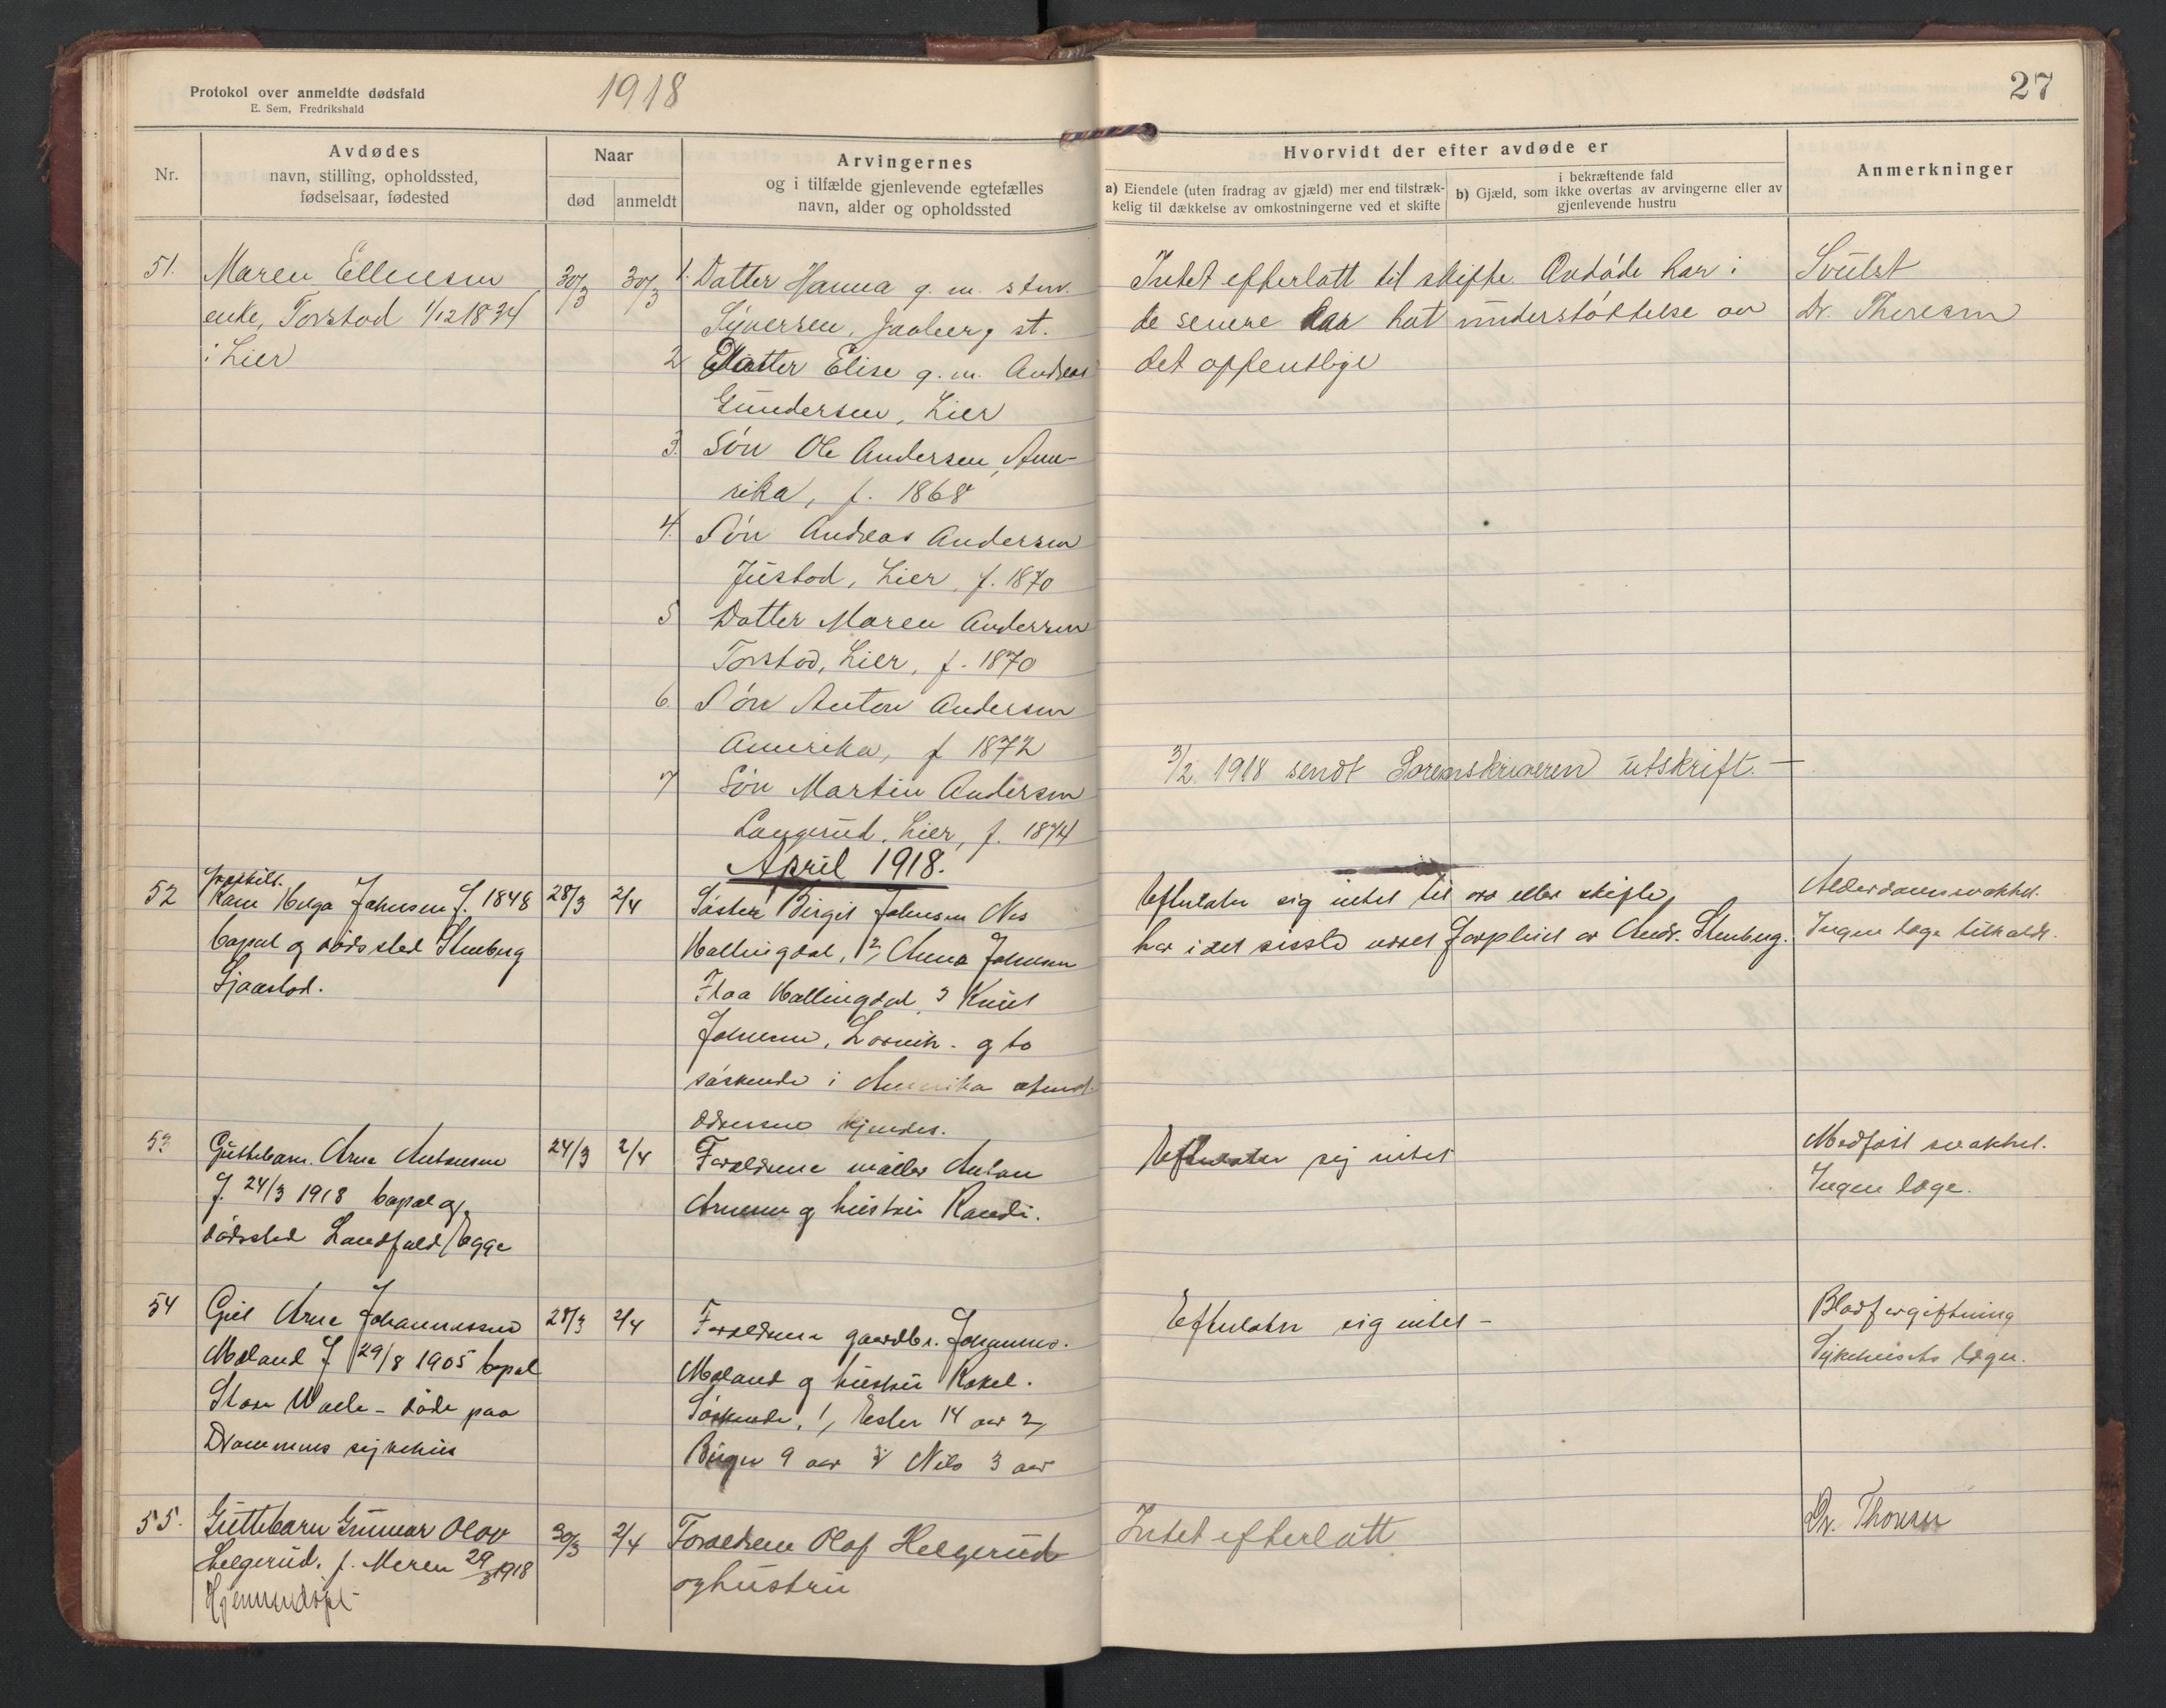 Protokol over anmeldte dødsfald
E. Sem, Fredrikshald
1918
27
Nr.
Avdødes
navn, stilling, opholdssted,
fødselsaar, fødested
Naar
død
anmeldt
Arvingernes
og i tilfælde gjenlevende egtefælles
navn, alder og opholdssted
Hvorvidt der efter avdøde er
a) Eiendele (uten fradrag av gjæld) mer end tilstræk-
kelig til dækkelse av omkostningerne ved et skifte
i bekræftende fald
b) Gjæld, som ikke overtas av arvingerne eller av
gjenlevende hustru
Anmerkninger
51.
Maren Ellensen
enke, Torstad 1/12 1834
i Lier
30/3
30/3
1. Datter Hanna g. m.
Syversen, st.
2 Datter Elise g. m. Andreas
Gundersen, Lier
3. Søn Ole Andersen, Ame-
rika, f. 1868
4. Søn Andreas Andersen
Justad, Lier, f. 1870
5 Datter Maren Andersen
Torstad, Lier, f. 1870
6. Søn Anton Andersen
Amerika, f 1872
7 Søn Martin Andersen
Langerud, Lier, f. 1874
Intet efterlatt til skifte. Avdøde har i
de senere aar hat understøttelse av
det offentlige
3/2. 1918 sendt Sorenskriveren utskrift. —
Svulst
Dr. Thoresen
April 1918.
52
Fraskilt.
Kone Helga Johnsen f. 1848
bopæl og dødssted Stenberg
Sjaastad.
28/3
2/4
Søster Birgit Johnsen Nes
Hallingdal, 2, Anna Johnsen
Flaa Hallingdal, 3 Knut
Johnsen, og to
søskende i Amerika
adressen kjendes.
Efterlater sig intet til arv eller skifte,
har i det sidste været forpleiet av Andr. Stenberg.
Alderdomssvakhet.
Ingen læge tilkaldt.
53
Guttebarn. Arne Antonsen
f. 24/3 1918 bopæl og
dødssted Landfald/Egge
24/3
2/4
Forældrene møller Anton
Arnesen og hustru Randi.
Efterlater sig intet
Medfødt svakhet.
Ingen læge.
54
Gut Arne Johannessen
Møland f 29/8 1905 bopæl
Store Walle - døde paa
Drammens sykehus
28/3
2/4
Forældrene gaardbr. Johannes.
Møland og hustru Rakel.
Søskende, 1, Ester 14 aar 2,
Birger 9 aar 3/ Nils 3 aar
Efterlater sig intet —
Blodforgiftning
Sykehusets læger.
55.
Guttebarn Gunnar Olav
Helgerud. f. Meren 29/3 1918
30/3
2/4
Forældrene Olaf Helgerud
og hustru
Intet efterlatt
Dr. Thoresen